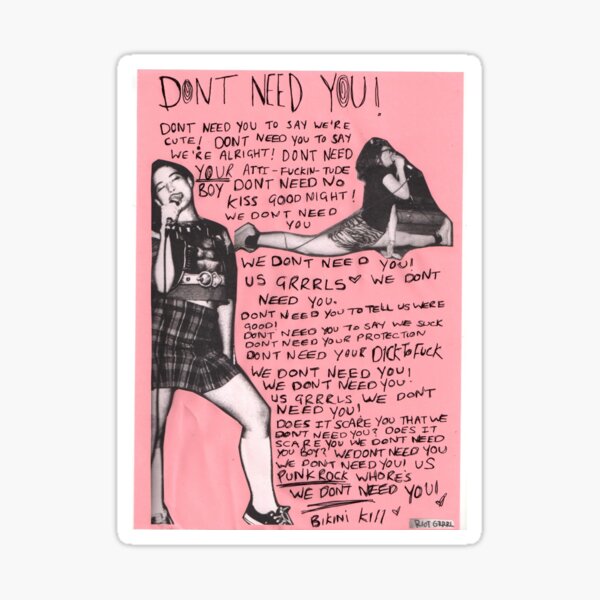 DONT NEED YOU!
DONT NEED YOU TO SAY WE'RE
CUTE! DONT NEED YOU TO SAY
WE'RE ALRIGHT! DONT NEED
YOUR ATTI-FUCKIN-TUDE
BOY DONT NEED NO
KISS GOOD NIGHT!
WE DONT NEED
YOU
WE DONT NEED YOU!
US GRRRLS ♥ WE DONT
NEED YOU.
DONT NEED YOU TO TELL US WERE
GOOD!
DONT NEED YOU TO SAY WE SUCK
DONT NEED YOUR PROTECTION
DONT NEED YOUR DICK TO FUCK
WE DONT NEED YOU!
WE DONT NEED YOU.
US GRRRLS WE DONT
NEED YOU!
DOES IT SCARE YOU THAT WE
DONT NEED YOU? DOES IT
SCARE YOU WE DONT NEED
YOU BOY? WE DONT NEED YOU
WE DONT NEED YOU! US
PUNK ROCK WHORE'S
WE DONT NEED YOU!
BIKINI KILL ♥
RIOT GRRRL